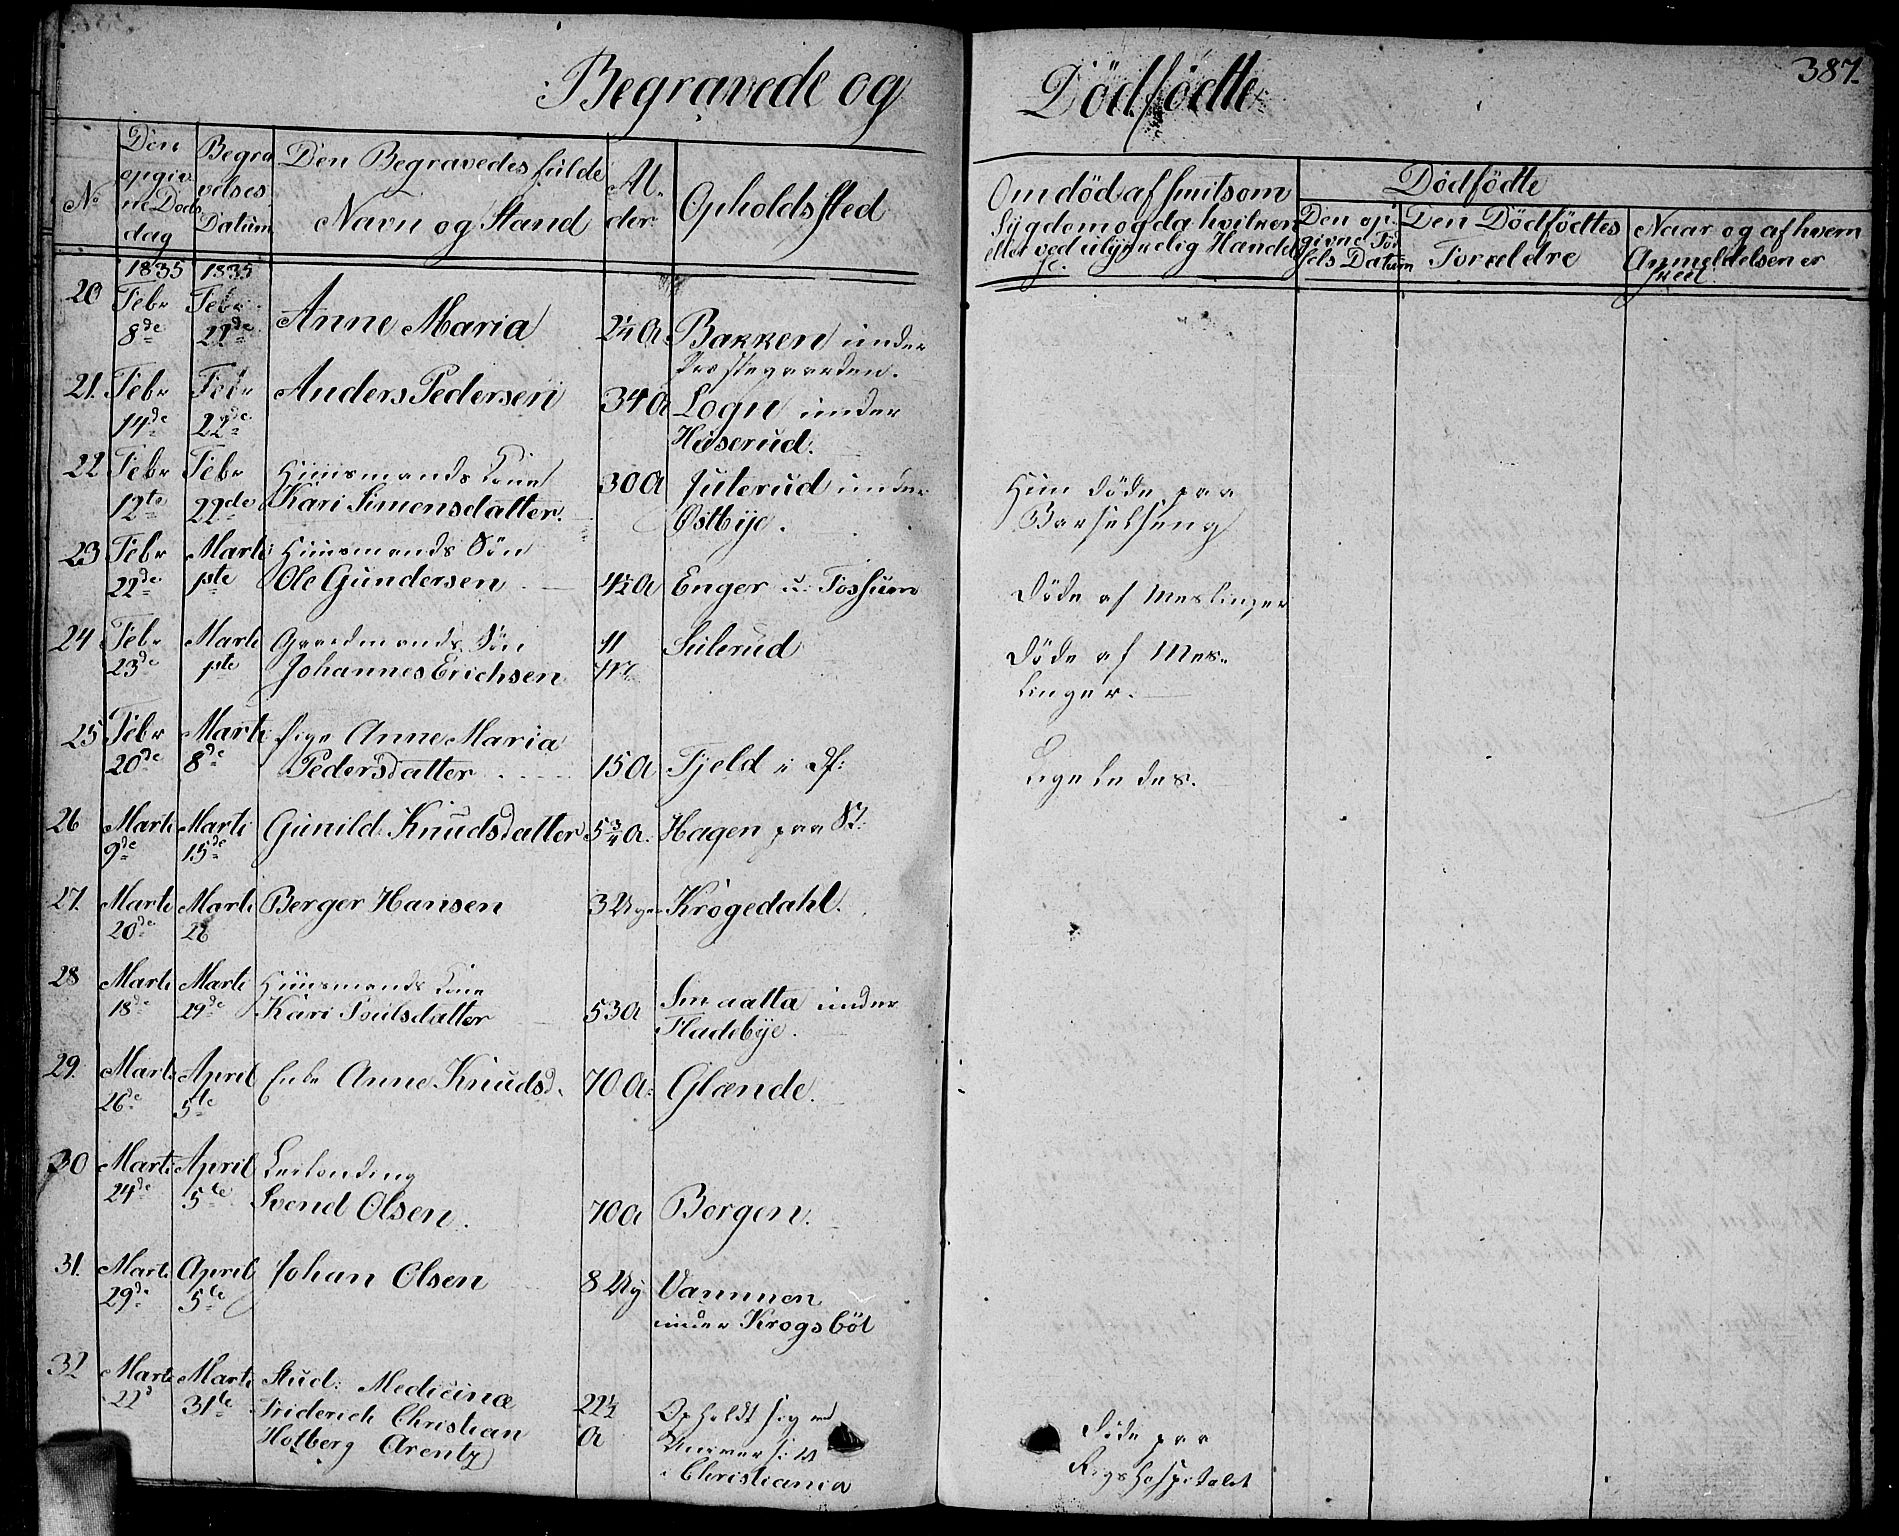 Begravede og Dödfödte
387.
No
Den opgivne Døds dag
Begravelses Datum
Den Begravedes fulde Navn og Stand
Alder
Opholdssted
Om död af smitsom Sygdom og da hvilken eller ved ulykkelig Handelse
Dödfödte
Den opgivne Födsels Datum
Den Dödfödtes Foræeldre
Naar og af hvem Anmeldelsen er skeel
1835 1835
20 Febr 8de Febr 22de Anne Maria 2¼ A Bakken under Præstegaarden.
21. Febr 14de Febr 22de Anders Pedersen 34 A Logn under Haserud.
22 Febr 12te Febr 22de Huusmands Kone Kari Simensdatter. 30 A Julerud under Østbye. Hun döde paa Barselseng
23 Febr 22de Marti 1ste Huusmands Sön Ole Gundersen 4½ A Enger u: Fossum Döde af Meslinger
24 Febr 23de Marti 1ste Gaardmands Sön Johannes Erichsen 11 Sulerud Döde af Meslinger.
25 Febr 20de Marti 8de Pige Anne Maria Pedersdatter 15 A Fjeld i Ligeledes.
26 Marti 9de Marti 15de Gunild Knudsdatter 5¾ A. Hagen paa
27. Marti 20de Marti 22 Berger Hansen 3 Uger Krögedahl.
28 Marti 18de Marti 29de Huusmands Kone Kari Poulsdatter 53 A Smaatta under Fladebye.
29. Marti 26de April 5te Enke Anne Knudsd. 70 A: Glænde.
30 Marti 24de April 5te Leilending Svend Olsen. 70 A Borgen.
31. Marti 29de April 5te Johan Olsen 8 Ug Vammen under Krogsböl
32 Marti 22d Marti 31te Stud: Medicinæ Friderich Christian Holberg Arentz 22½ A Opholdt sig ved Universitet i Christiania Döde paa Rigshospitalet